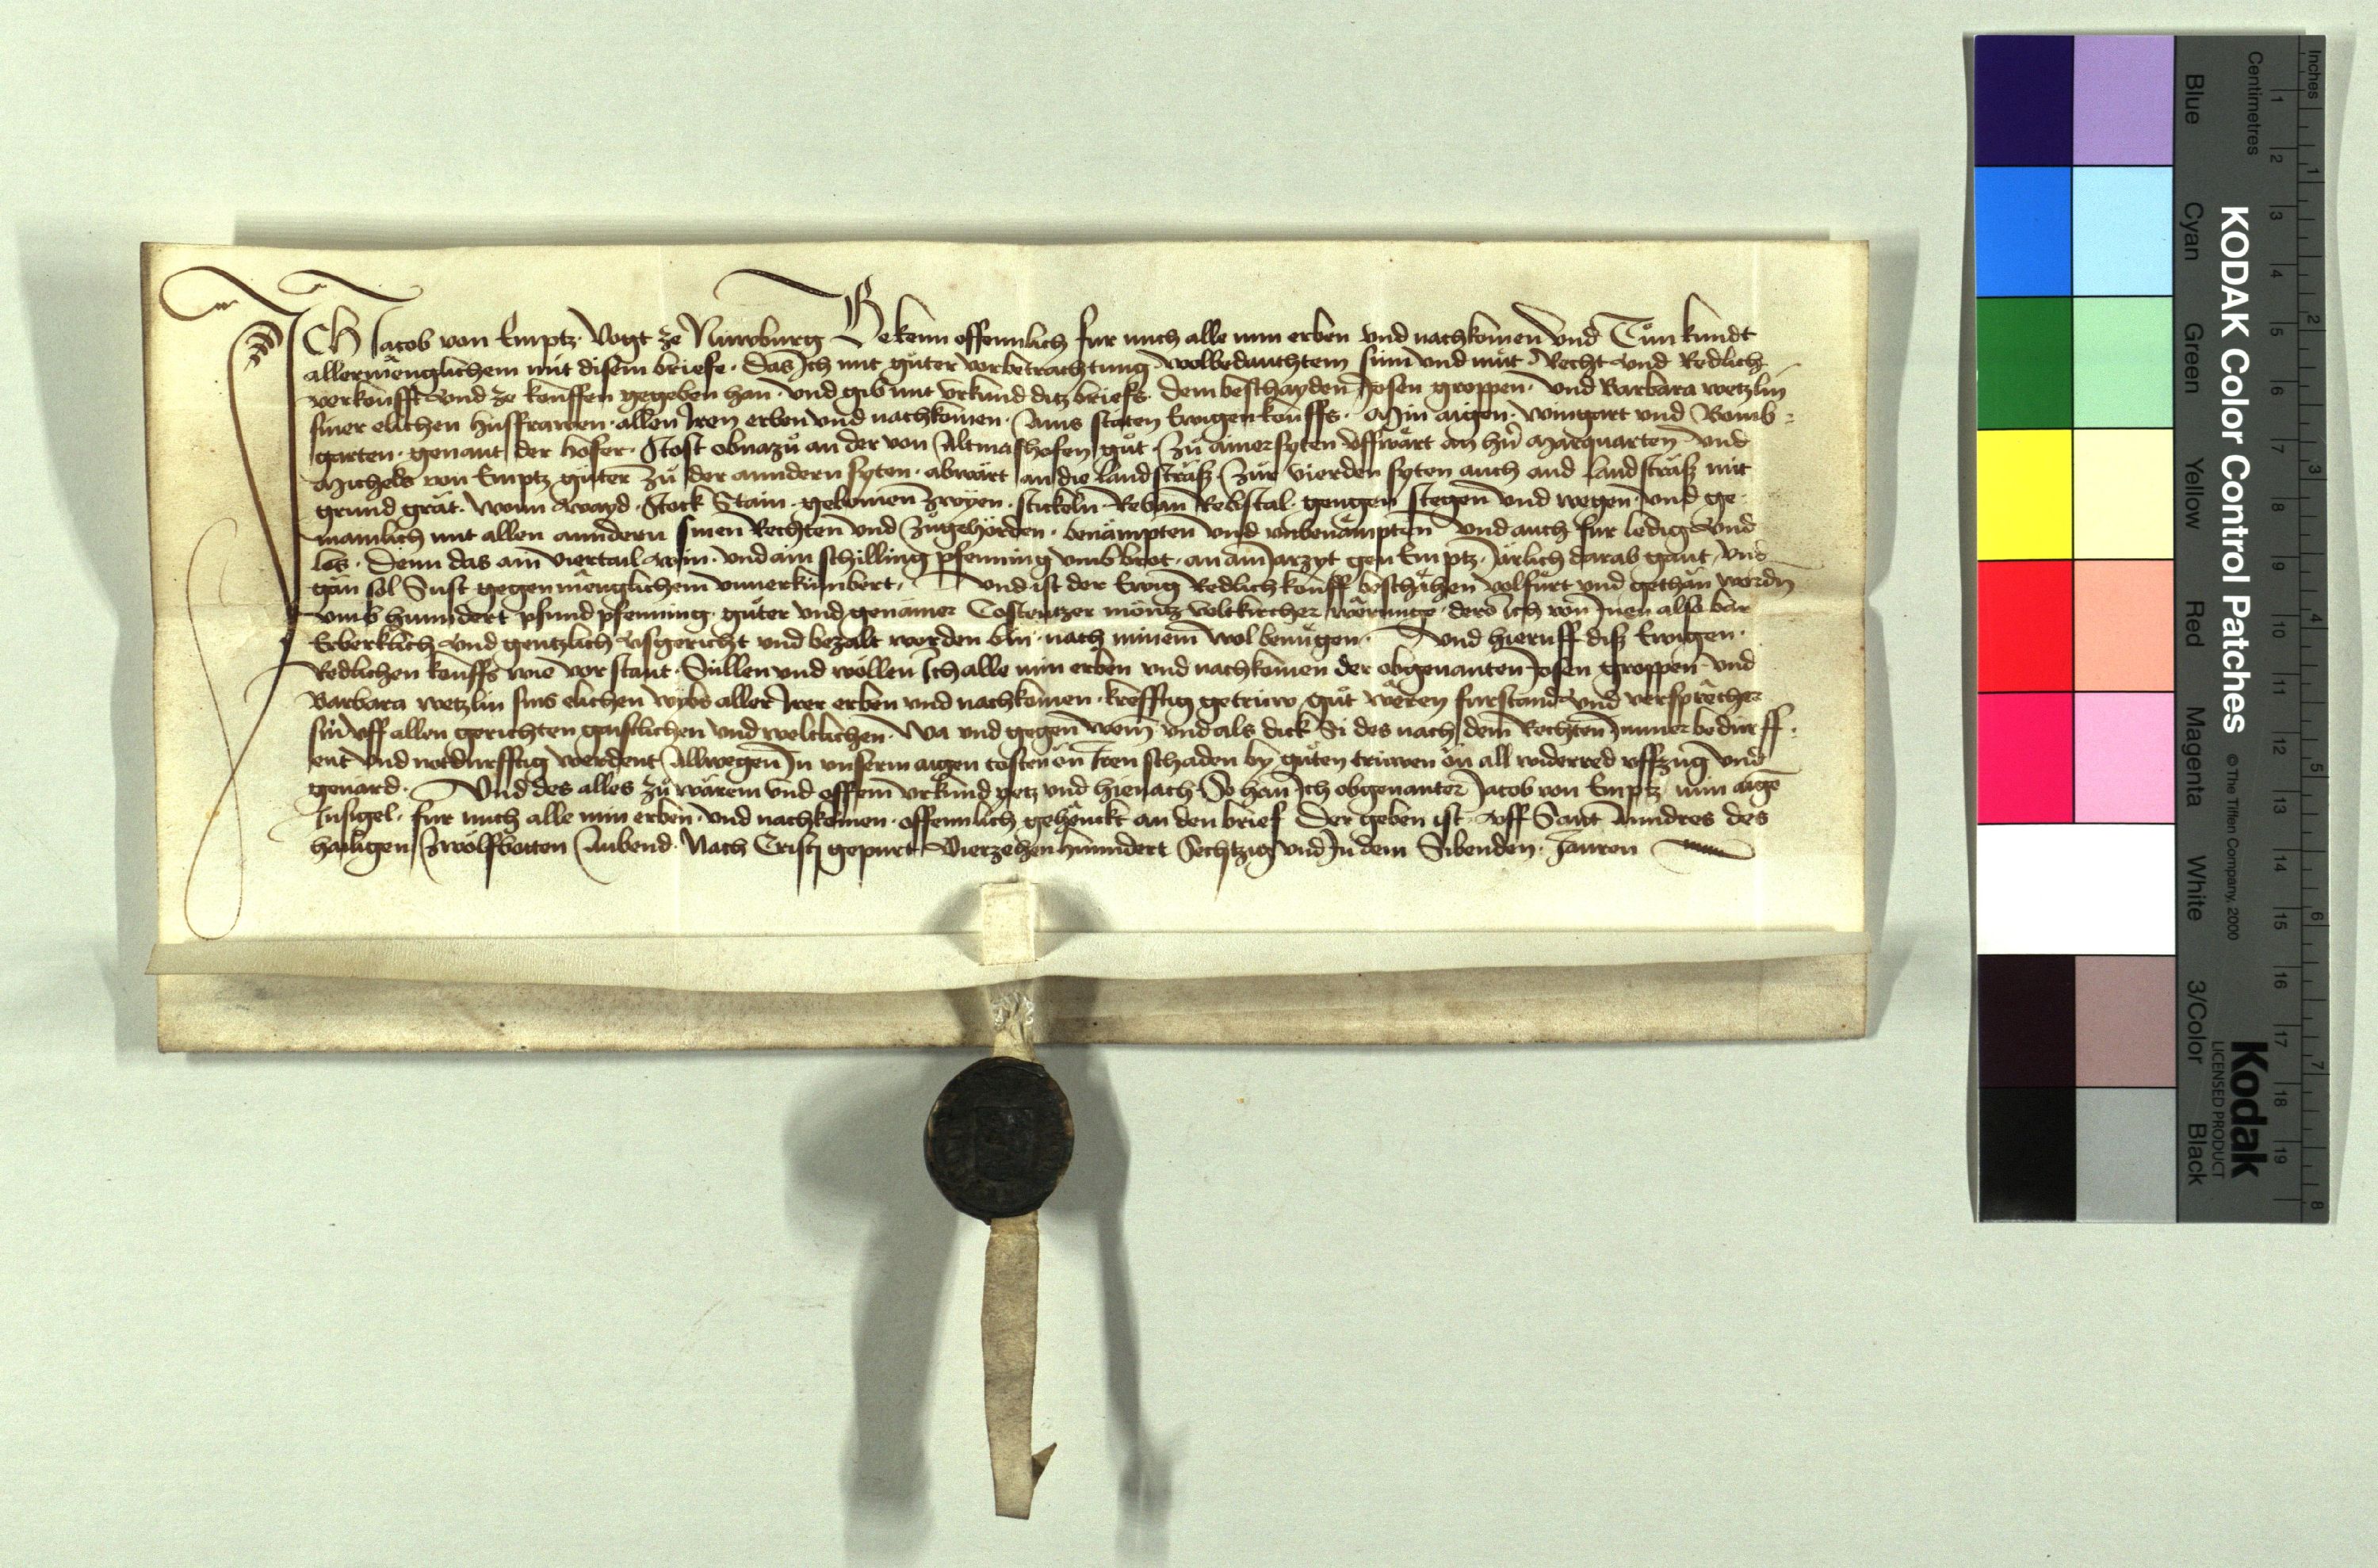 ICH Jacob von Emptz Vogt ze Nuwburg Bekenn offennlich fur mich alle min erben vnd nachkomen vnd Tuͦn kundt
allermenglichem mit disem briefe · Das Ich mit guͦter vorbetrachtung wolbedauchtem sinn vnd muͦt Recht vnd Redlich
verkoufft vnd ze kouffen gegeben han · vnd gib mit vrkund ditz briefs dem beschayden Josen groppen · vnd Barbara wetzlin
siner elichen husfrawen · allen Iren erben vnd nachkomen · Ains stäten Ewigen kouffs · Min aigen wingart vnd Bomb-
garten · genant der hofer · Stost obnazuͦ an der von Altmashofen guͦt · Zuͦ ainer syten vffwärt an hn̄ Marquarten vnd
Michels von Emptz guͤter zuͦ der anndern syten · abwärt an die landstrăß Zuͦr vierden syten auch and landstrăß mit
grund grät · wunn wayd · Stock Stain · gebomen zwyen · stickeln Reban Rebstal · gengen stegen vnd wegen · vnd ge-
mainlich mit allen anndern sinen Rechten vnd Zuͦgehörden · benämpten vnd vnbenämpten vnd auch fur ledig vnd
los · Denn das ain viertail win · vnd ain schilling pfenning vmb brot · an ain Jarzyt gen Emptz · Järlich darab găut vnd
găn sol Sust gegen menglichem vnuerkumbert · vnd ist der Ewig Redlich kouff beschähen volfuͤrt vnd gethăn wordn
vmb hunndert pfund pfenning · guͦter vnd genämer Costentzer müntz veltkircher wärunge · dero Ich von Inen also bar
Erberklich vnd gentzlich vsgericht vnd bezalt worden bin · nach minem wol benuͤgen · vnd hieruff diß Ewigen ·
Redlichen kouffs wie vor staut · Süllen vnd wöllen Ich alle min erben vnd nachkomen der obgenanten Josen groppen vnd
Barbara wetzlin sins elichen wybs aller Irer erben vnd nachkomen · krefftig getruw guͦt wëren furstand vnd versprecher
sin vff allen gerichten gaistlichen vnd weltlichen · Wa vnd gegen wem vnd als dick Si des nach dem Rechten Immer bedurff-
ent vnd notdurfftig werdent Allwegen In vnserm aigen costen ŏn Iren schaden by guͦten truwen ŏn all widerred vffzug vnd
genärd · Vnd des alles zuͦ wărem vnd offem vrkund yetz vnd hienach So han Ich obgenanter Jacob von Emptz min aigē
Insigel · fur mich alle min erben · vnd nachkomen · offennlich gehenckt an den brief Der geben ist vff Sant Anndres des
hailigen Zwölfbotten Aubend · Nach Cristj gepurt Vierzehenhunndert Sechtzig vnd In dem Sibenden · Jauren
KODAK Color Control Patches
© The Tiffen Company, 2000
Kodak
LICENSED PRODUCT
Blue Cyan Green Yellow Red Magenta White 3/Color Black
Inches 1 2 3 4 5 6 7 8
Centimetres 1 2 3 4 5 6 7 8 9 10 11 12 13 14 15 16 17 18 19